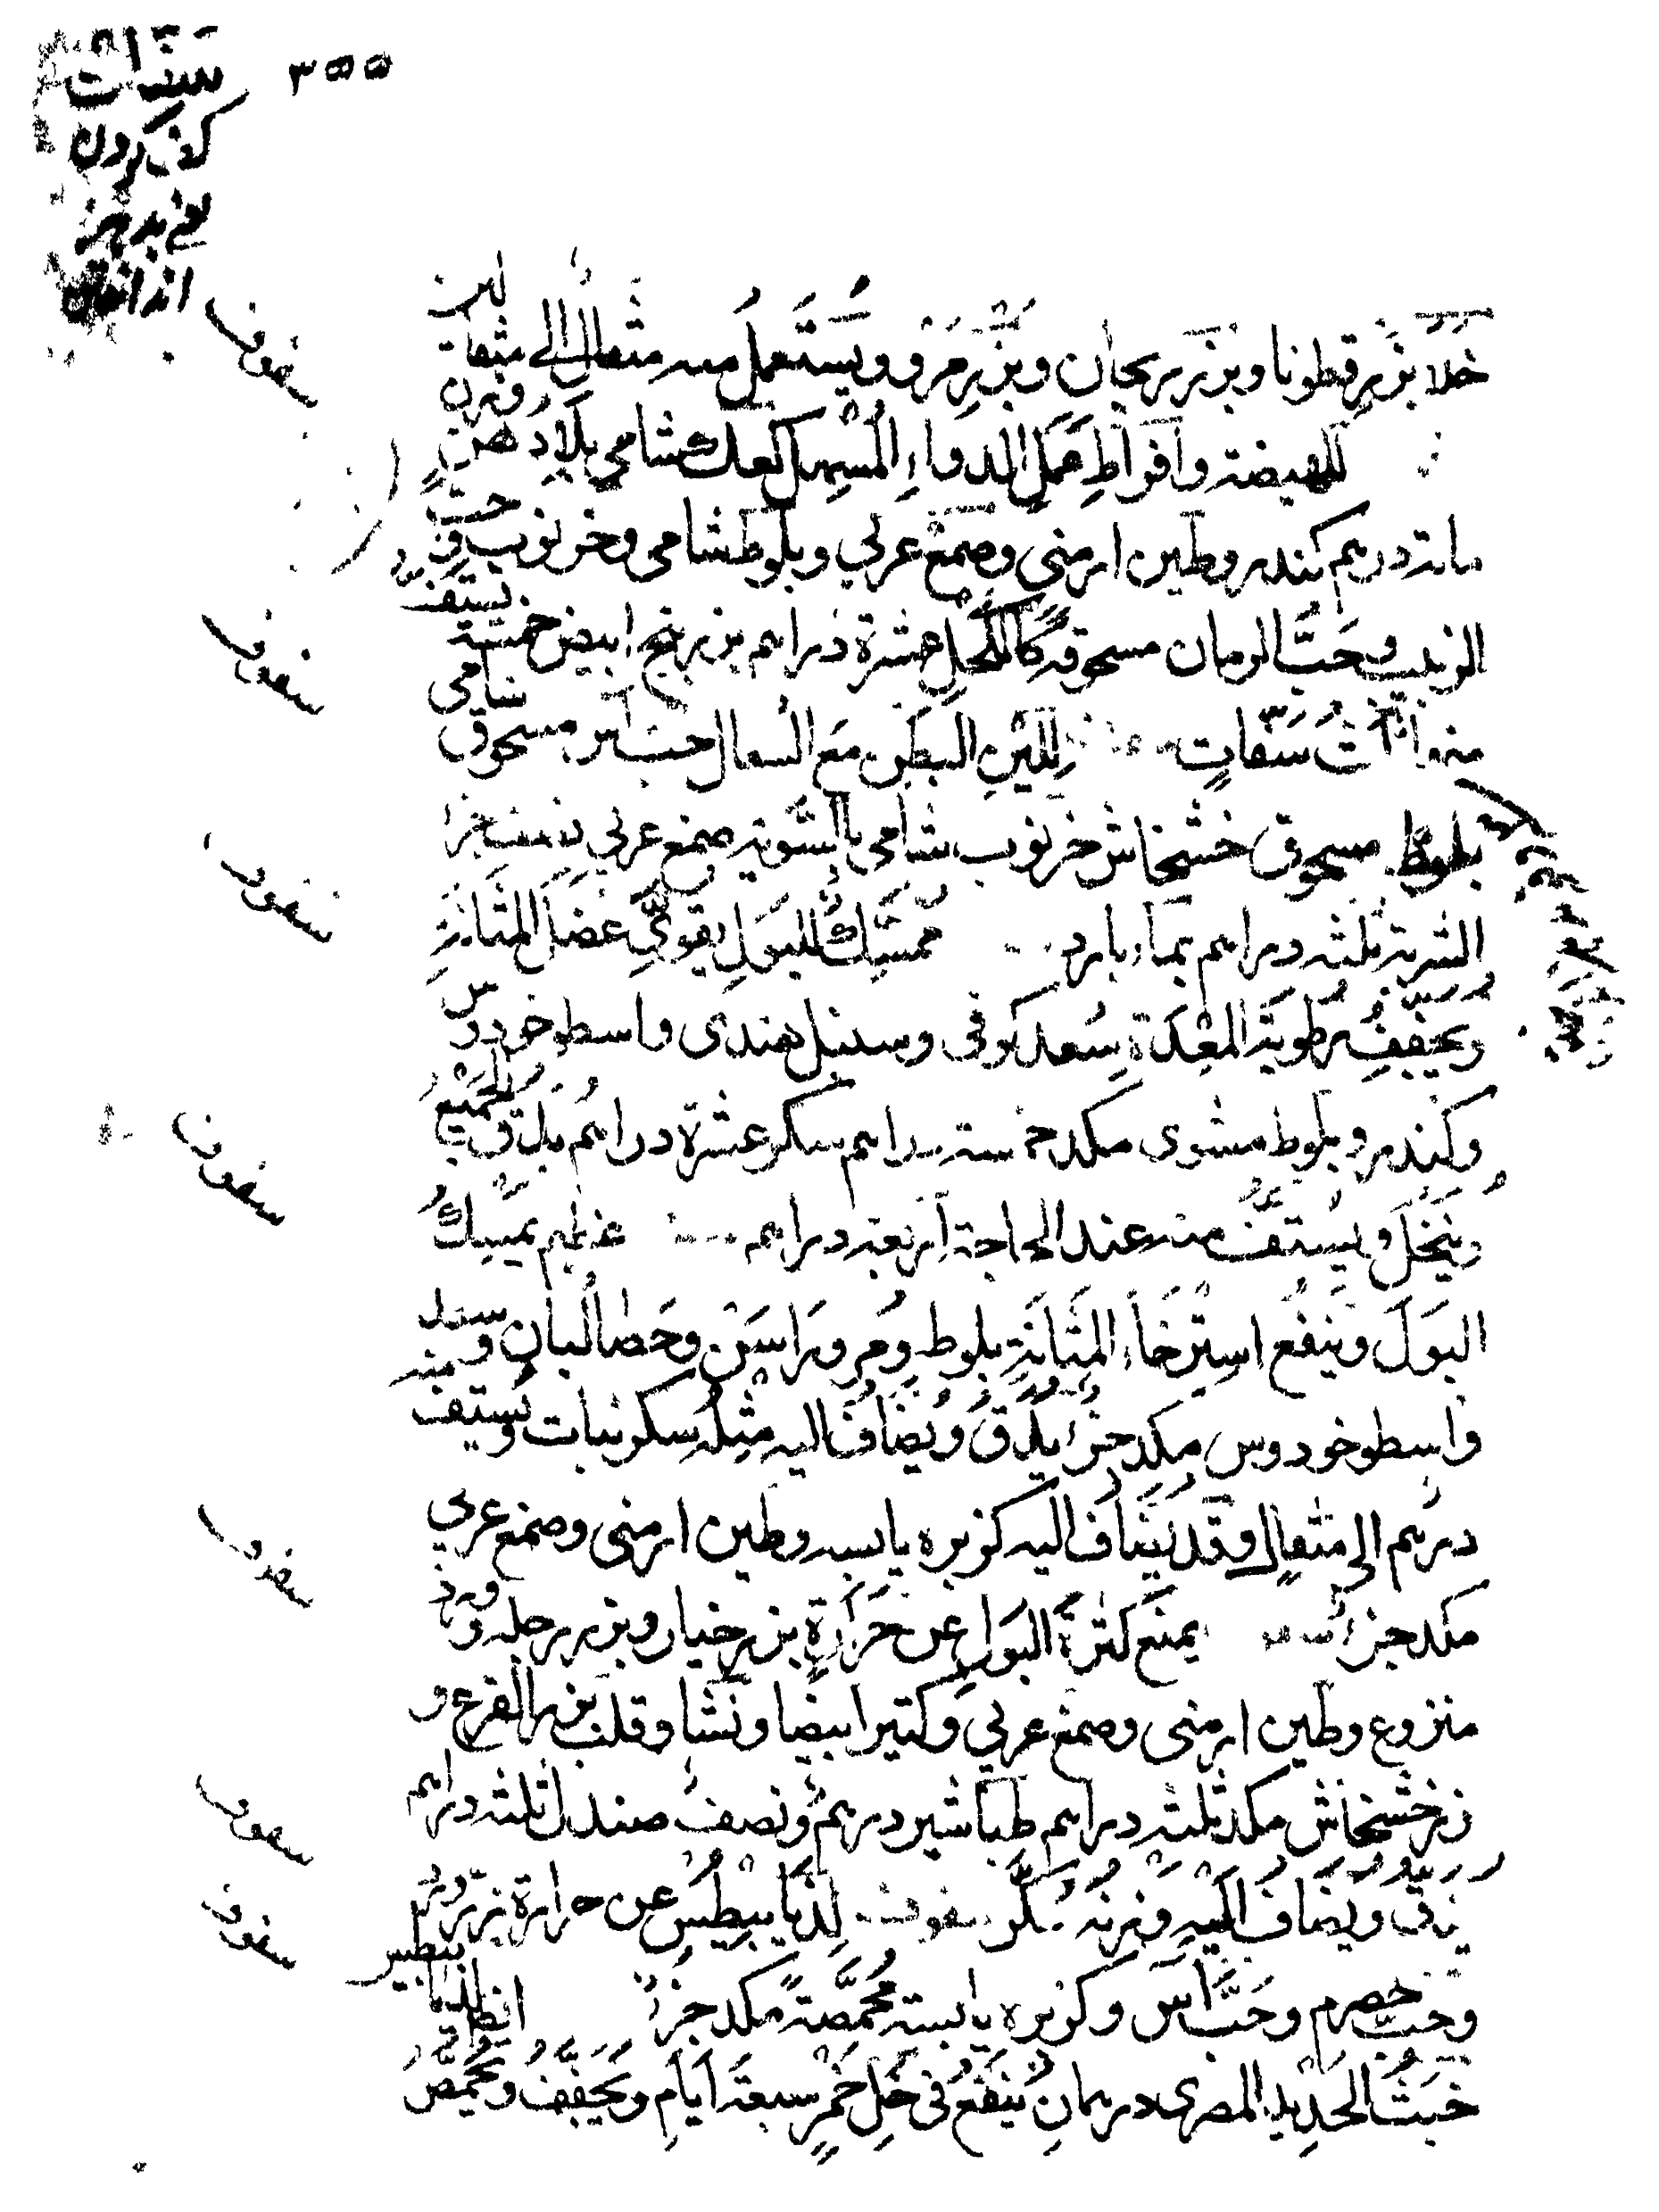 ٣٥٥
سفوف
كف كردن
اند
خلا بزر قطونا وبزر ريحان وبزر مرو ويستعمل منه مثقال الى مثقالين
سفوف
للهيضة وافراط عمل الدواء المسهل كعك شامي بلا دهن وزن
مائة درهم كندر وطين ارمني وصمغ عربي وبلوط شامي وخرنوب وحب
الزبيب وحب الرمان مسحوقة كالكحل عشرة دراهم بزر بنج ابيض خمسة يستف
سفوف
منه ثلاث سفات للين البطن مع السعال حب آس مسحوق شامي
بلوط مسحوق خشخاش خرنوب شامي بالسوية صمغ عربي نصف جزء
سفوف
الشربة ثلثة دراهم بماء بارد ممسك للبول يقوي عضل المثانة
ويجفف رطوبة المعدة سعد كوفي وسنبل هندي واسطوخودوس
وكندر وبلوط مشوي مكد خمسة دراهم سكر عشرة دراهم يدق الجميع
سفوف
وينخل ويستف منه عند الحاجة اربعة دراهم عظيم يمسك
البول وينفع استرخاء المثانة بلوط ومر وراسن وحصا لبان وسنبل
واسطوخودوس مكد جزء يدق ويضاف اليه مثله سكر نبات ويستف منه
درهم الى مثقال وقد يضاف اليه كزبره يابسه وطين ارمني وصمغ عربي
سفوف
مكد جزء يمنع كثرة البول عن حرارة بزر خيار وبزر رجله وورد
منزوع وطين ارمني وصمغ عربي وكتيرا بيضا ونشا وقلب بزر القرع و
بزر خشخاش مكد ثلثة دراهم طباشير درهم ونصف صندل ثلثة دراهم
سفوف
يدق ويضاف اليه وزنه سكر سفوف لذيابيطس عن حرارة بزر ورد
سفوف
وحب حصرم وحب آس وكزبره يابسة محمصة مكد جزء ايضا لذيابيطس
خبث الحديد المصري درهمان ينقع في خل خمر سبعة ايام ويجفف ويحمص